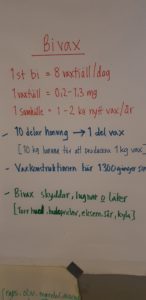 Bivax
1 st bi = 8 vaxfjäll/dag
1 vaxfjäll = 0,2-1,3 mg
1 samhälle = 1-2 kg nytt vax/år
- 10 delar honung → 1 del vax
[10 kg honung för att producera 1 kg vax]
- Vaxkonstruktionen bär 1300 gånger sin
- Bivax skyddar, lugnar & läker
[torr hud, eksem, sår, kyla]